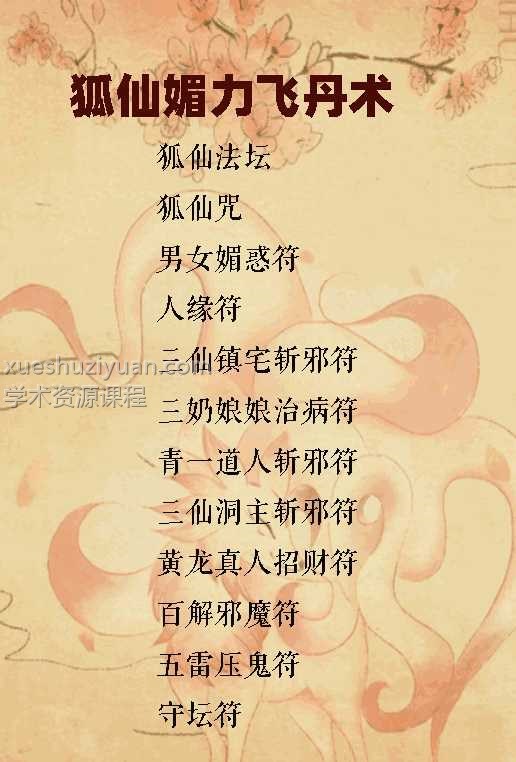 狐仙媚力飞丹术
狐仙法坛
狐仙咒
男女媚惑符
人缘符
三仙镇宅斩邪符
xueshuziyuan.com
学术资源课程
三奶娘娘治病符
青一道人斩邪符
三仙洞主斩邪符
黄龙真人招财符
百解邪魔符
五雷压鬼符
守坛符